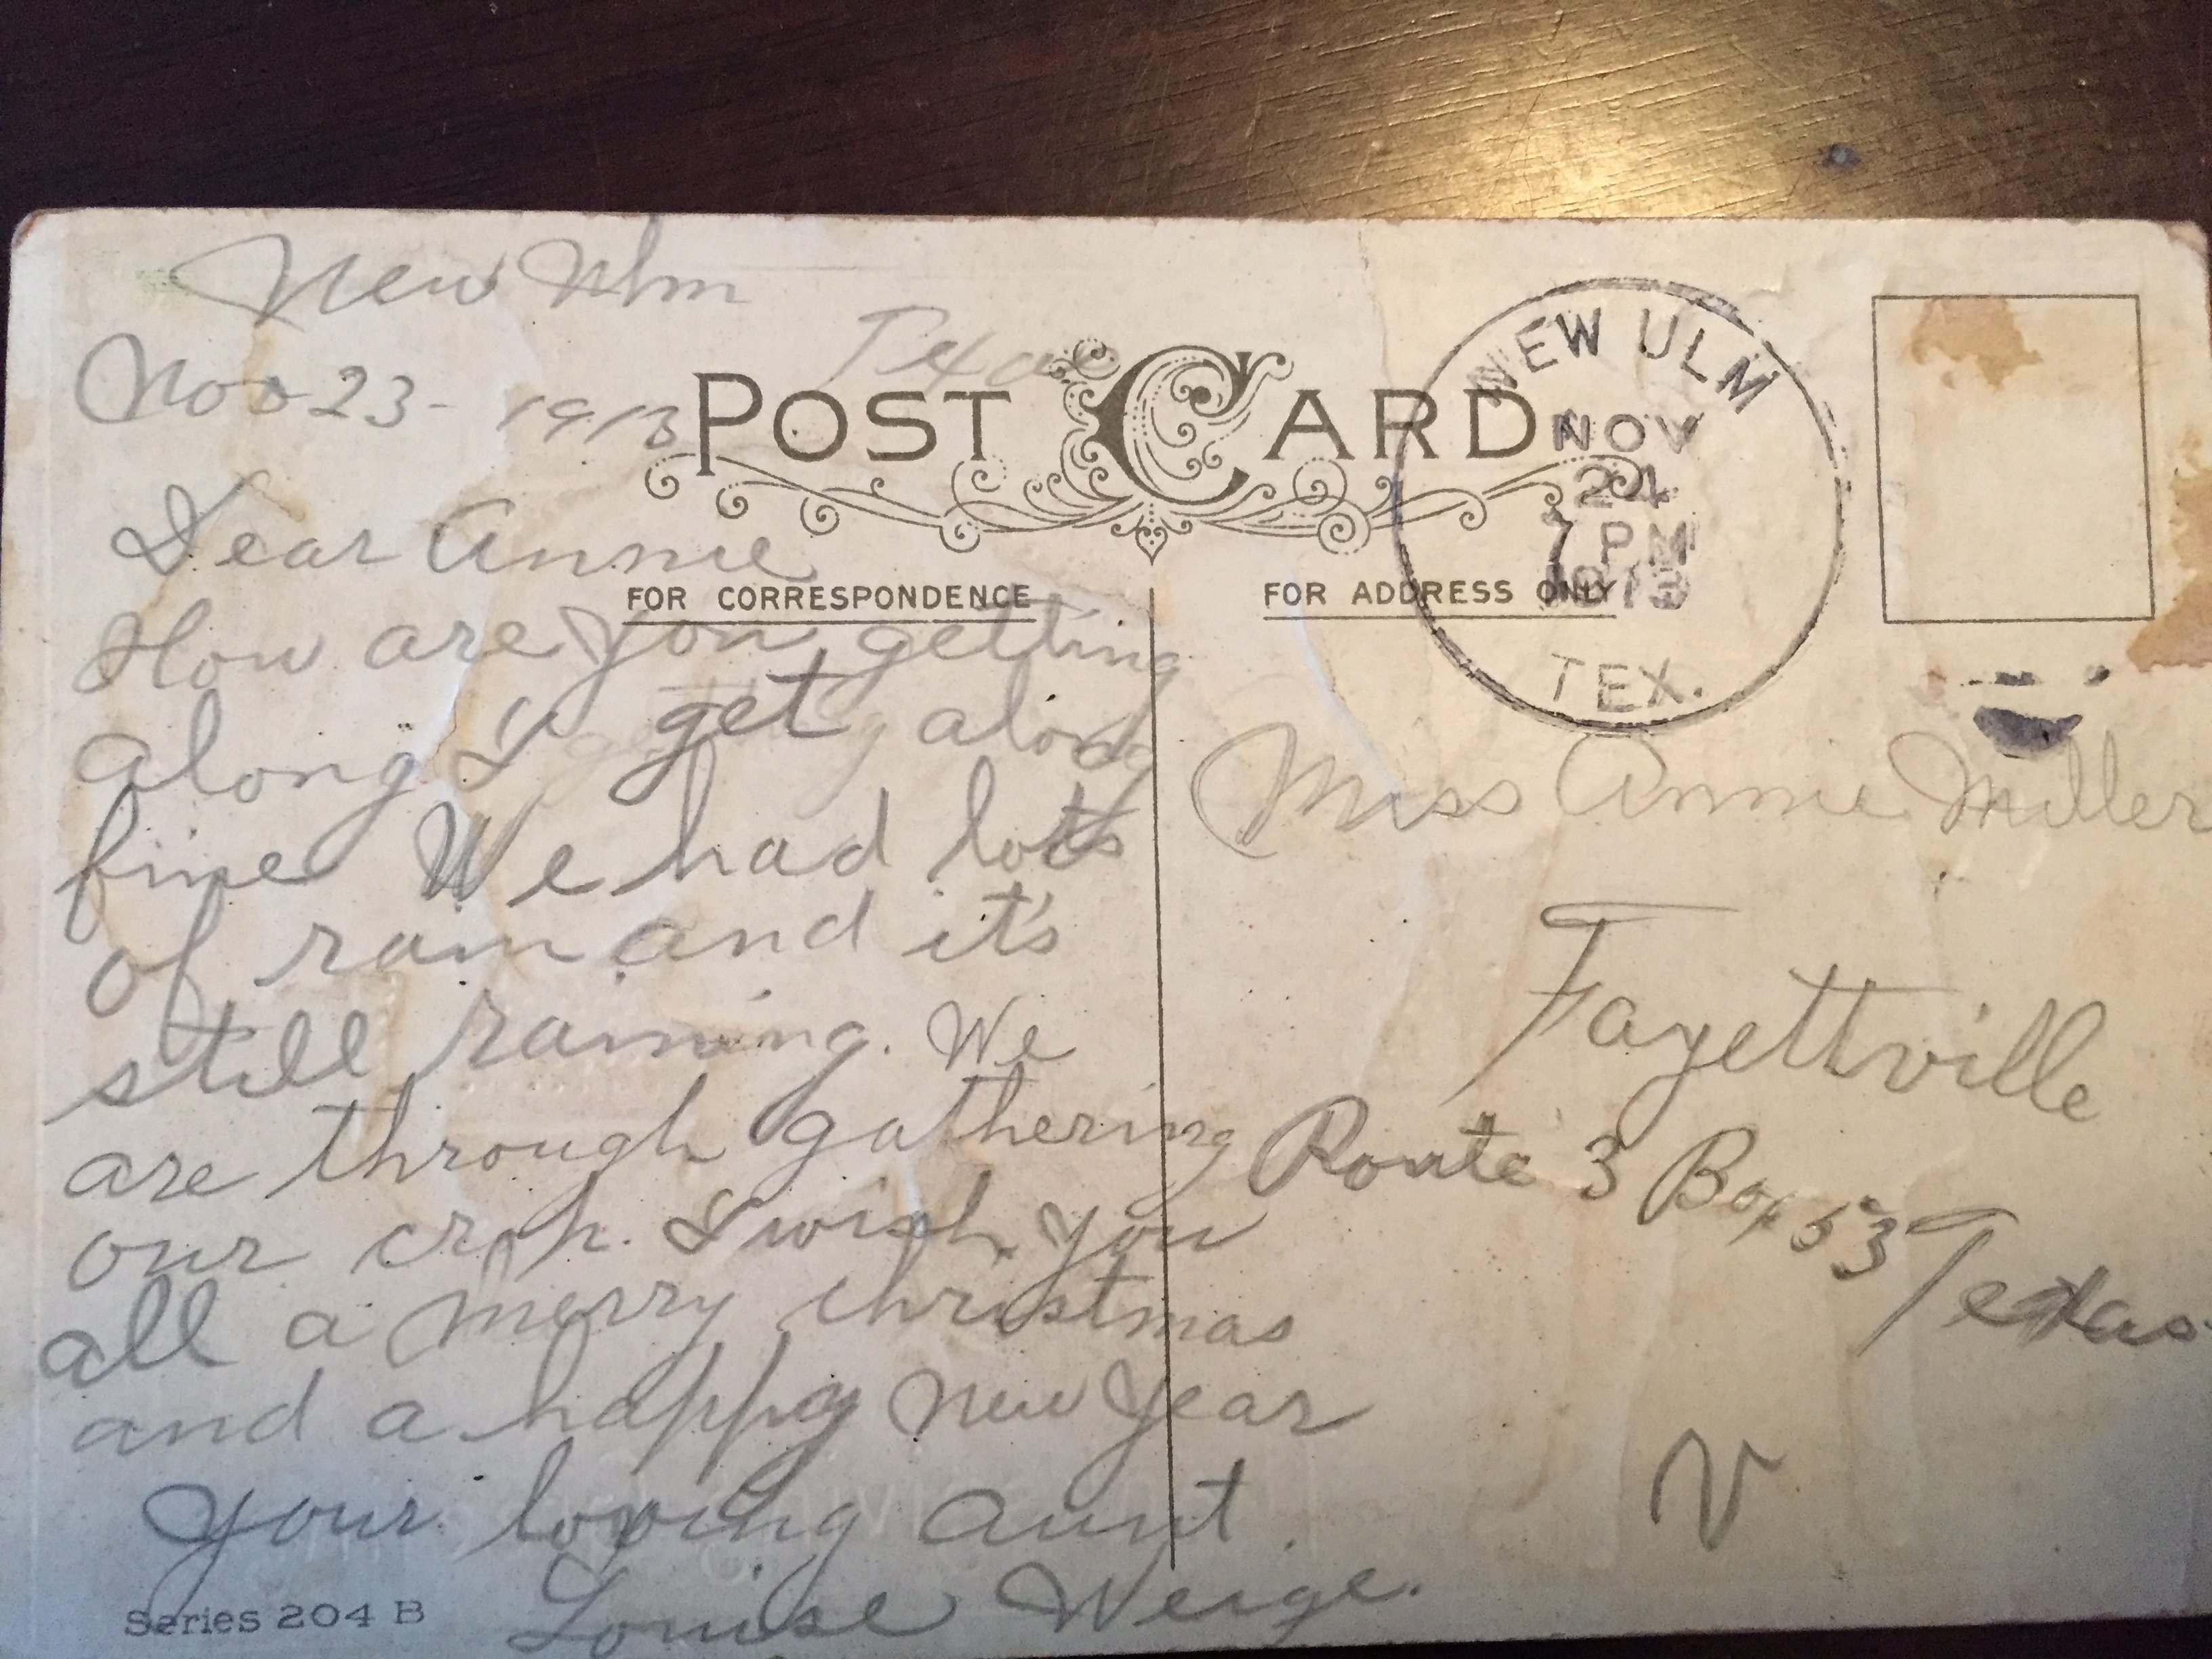 New Ulm
Texas
Nov 23- 1913
POST CARD
Dear Annie
FOR CORRESPONDENCE
How are you getting
along I get along
fine We had lots
of rain and it's
still raining. We
are through gathering
our crop. I wish you
all a merry christmas
and a happy New Year
your loving aunt.
Louise Weige.
Series 204 B
NEW ULM
NOV
24
7 PM
1913
TEX.
FOR ADDRESS ONLY
Miss Annie Miller
Fayettville
Route 3 Box 53
Texas